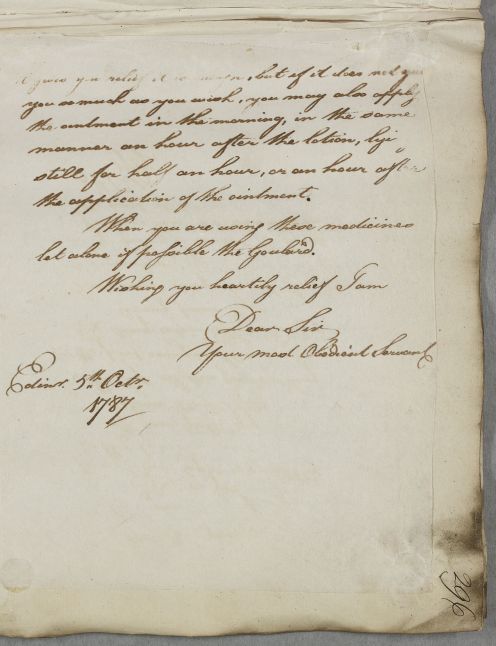 it gives you relief it is                , but if it does not give
you so much as you wish, you may also apply
the ointment in the morning, in the same
manner an hour after the lotion, lyi„
still for half an hour, or an hour after
the application of the ointment.
When you are using these medicines
let alone if possible the Goulard.
Wishing you heartily relief I am
Dear Sir
Your most Obedient Servant
Edinr. 5th. Octr.
1787
296